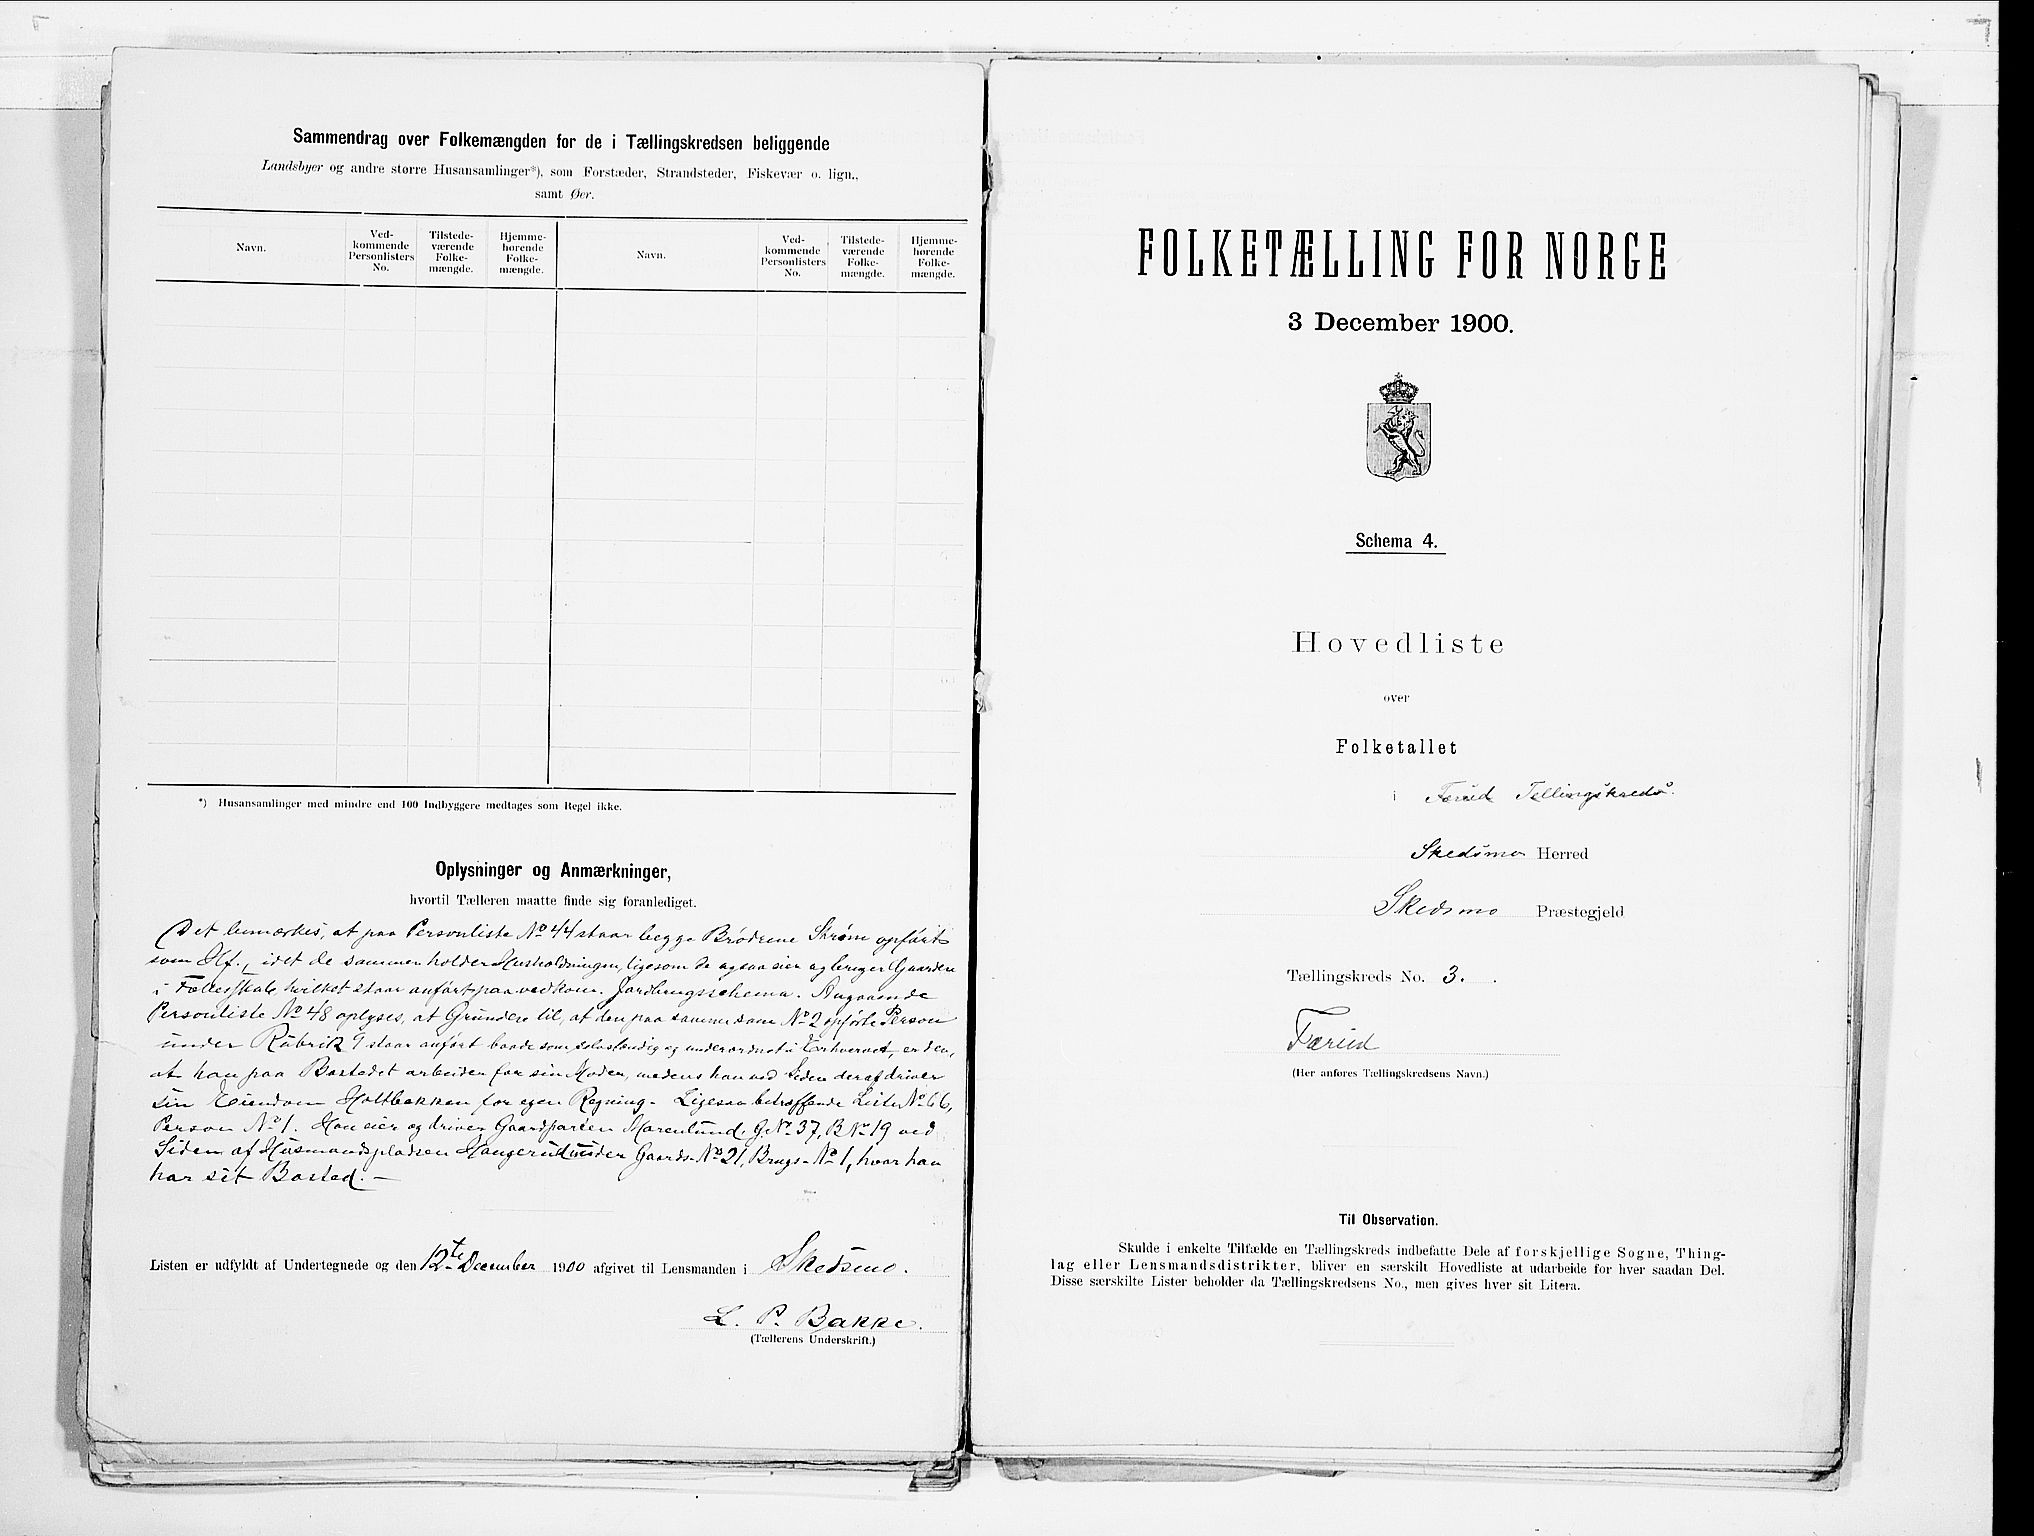 Sammendrag over Folkemængden for de i Tællingskredsen beliggende
Landsbyer og andre større Husansamlinger*), som Forstæder, Strandsteder, Fiskevær o. lign.,
samt Øer.
Navn.
Ved-
kommende
Personlisters
No.
Tilstede-
værende
Folke-
mængde.
Hjemme-
hørende
Folke-
mængde.
Navn.
Ved-
kommende
Personlisters
No.
Tilstede-
værende
Folke-
mængde.
Hjemme-
hørende
Folke-
mængde.
*) Husansamlinger med mindre end 100 Indbyggere medtages som Regel ikke.
Oplysninger og Anmærkninger,
hvortil Tælleren maatte finde sig foranlediget.
Det bemærkes, at paa Personliste No 44 staar begge Brødrene Strøm opført
som Hf., idet de sammen holder Husholdningen, ligesom de ogsaa eier og bruger Gaarden
i Fællesskab, hvilket staar anført paa vedkom. Jordbrugsschema. Angaaende
Personliste No 48 oplyses, at Grunden til, at den paa samme som No 2 opførte Person
under Rubrik 9 staar anført baade som selvstændig og underordnet i Erhvervet, er den,
at han paa Bostedet arbeider for sin Moder, medens han ved Siden deraf driver
sin Eiendom Holtbakken for egen Regning. Ligesaa betræffende Liste No 66,
Person No 1. Han eier og driver Gaardparten Marenlund, G.No 37, B.No 19 ved
Siden af Husmandspladsen Haugerud under Gaards-No 21, Brugs-No 1, hvor han
har sit Bosted. —
Listen er udfyldt af Undertegnede og den 12te December 1900 afgivet til Lensmanden i Skedsmo.
L. P. Bakke.
(Tællerens Underskrift.)
FOLKETÆLLING FOR NORGE
3 December 1900.
Schema 4.
Hovedliste
over
Folketallet
i Færud Tellingskreds.
Skedsmo Herred
Skedsmo Præstegjeld
Tællingskreds No. 3.
Færud
(Her anføres Tællingskredsens Navn.)
Til Observation.
Skulde i enkelte Tilfælde en Tællingskreds indbefatte Dele af forskjellige Sogne, Thing-
lag eller Lensmandsdistrikter, bliver en særskilt Hovedliste at udarbeide for hver saadan Del.
Disse særskilte Lister beholder da Tællingskredsens No., men gives hver sit Litera.